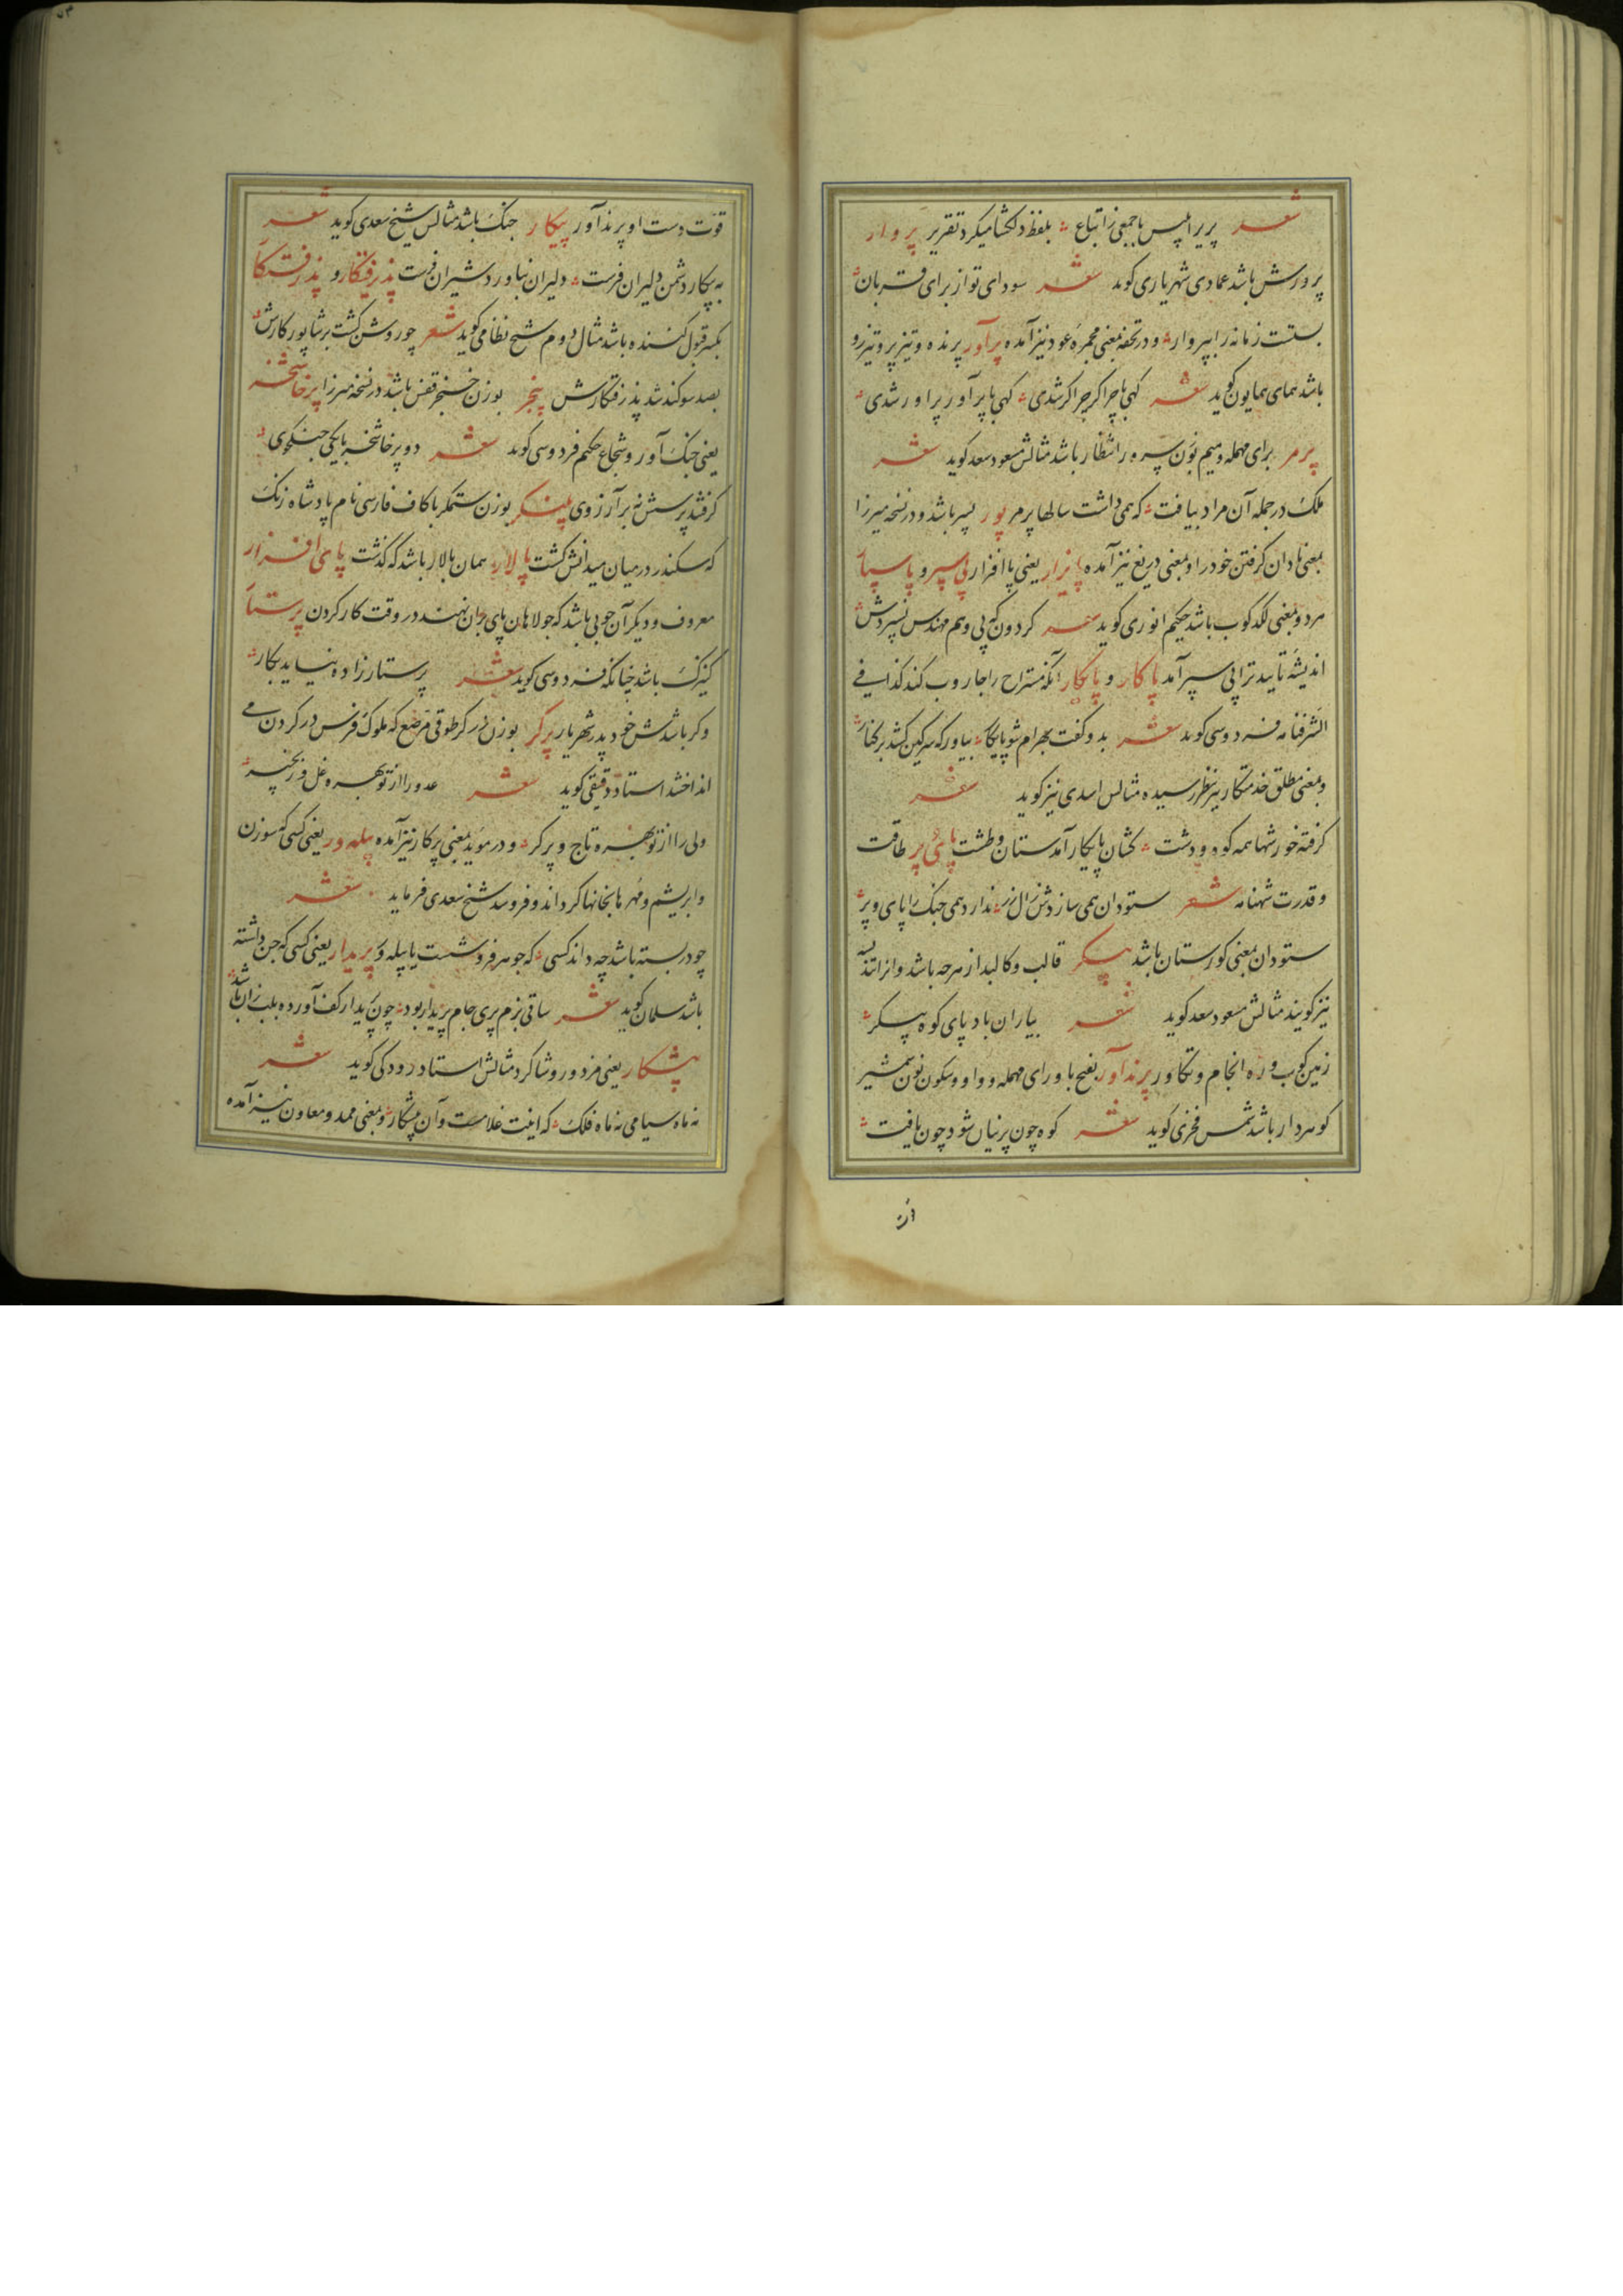 شعر پریر ابلیس با جمعی ز اتباع بلفظ دلکشا میکرد تقریر پروار
پرورش باشد عمادی شهریاری کوید شعر سودای تو از برای قربان
بستت زمانه را بپروار و در تحفه بمعنی مجمره عود نیز آمده پرآور پرنده و تیزپر و تیزرو
باشد همای همایون کوید شعر کهی با چرا کر چرا کر شدی کهی با پرآور پراور شدی
پرمر برای مهمله و میم بوزن سرور انتظار باشد مثالش مسعود سعد کوید شعر
ملک در جمله آن مراد بیافت که همی داشت سالها پرمر پور پسر باشد و در نسخه میرزا
بمعنی نادان کرفتن خود را و بمعنی دریغ نیز آمده پایزار یعنی پا افزار پی سپر و پا سپار
مرد و بمعنی لکدکوب باشد حکیم انوری کوید شعر کردون که پی وهم مهندس نسپردش
اندیشه تایید ترا پی سپر آمد پاکار و پایکار آنکه مستراح را جاروب کند کذا فی
الشرفنامه فردوسی کوید شعر بدو کفت بهرام شو پایکار بیاور که سرکین کشد بر کنار
و بمعنی مطلق خدمتکار نیز بنظر رسیده مثالش اسدی نیز کوید شعر
کرفته خورشها همه کوه و دشت کشان پایکار آبدستان و طشت پای پر طاقت
و قدرت شهنامه شعر ستودان همی سازدش زال زر ندارد همی جنک را پای و پر
ستودان بمعنی کورستان باشد پیکر قالب و کالبد از هرچه باشد و انرا تندیسه
نیز کویند مثالش مسعود سعد کوید شعر بیاران باد پای کوه پیکر
زمین کوب و ره انجام و تکاور پرندآور بفتح با و رای مهمله و واو و سکون نون شمشیر
کوهردار باشد شمس فخری کوید شعر کوه چون پرنیان شود چون یافت
قوت دست او پرندآور پیکار جنک باشد مثالش شیخ سعدی کوید شعر
به پیکار دشمن دلیران فرست دلیران بناورد شیران فرست پذرفتکار و پذرفتکار
بکسر قبول کننده باشد مثال دوم شیخ نظامی کوید شعر چو روشن کشت بر شاپور کارش
بصد سوکند شد پذرفتکارش پنجر بوزن خنجر قفس باشد در نسخه میرزا پرخاشخر
یعنی جنک آور و شجاع حکیم فردوسی کوید شعر دو پرخاشخر با یکی جنکجوی
کرفتند پرسش نه بر آرزوی پلنکر بوزن ستمکر با کاف فارسی نام پادشاه زنک
که سکندر در میان میدانش کشت پالار همان بالار باشد که کذشت پای افزار
معروف و دیکر آن چوبی باشد که جولاهان پای بران نهند در وقت کار کردن پرستار
کنیزک باشد چنانکه فردوسی کوید شعر پرستارزاده نیاید بکار
وکر باشدش خود پدر شهریار پرکر بوزن زرکر طوقی مرصع که ملوک فرس در کردن می
انداختند استاد دقیقی کوید شعر عدو را از تو بهره غل و زنجیر
ولی را از تو بهره تاج و پرکر و در مؤید بمعنی پرکار نیز آمده پیله ور یعنی کسی که سوزن
و ابریشم و مهره ها بخانها کرداند و فروشد شیخ سعدی فرماید شعر
چو دربسته باشد چه داند کسی که جوهر فروشست یا پیله ور پریدار یعنی کسی که جن داشته
باشد سلمان کوید شعر ساقی بزم پری جام پریدار بود چون پریدار کف آورده بلب زان باشد
پیشکار یعنی مزدور و شاکرد مثالش استاد رودکی کوید شعر
نه ماه سیامی نه ماه فلک که اینت غلامست و آن پیشکار و بمعنی ممد و معاون نیز آمده